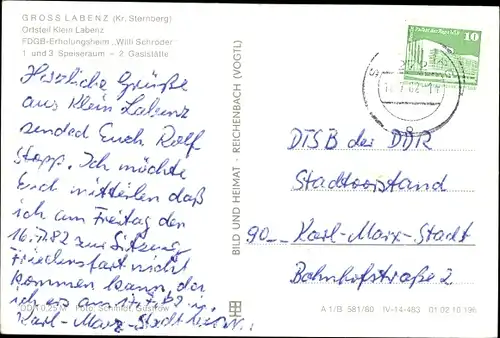 GROSS LABENZ (Kr. Sternberg)
Ortsteil Klein Labenz
FDGB-Erholungsheim „Willi Schröder“
1 und 3 Speiseraum – 2 Gaststätte
Herzliche Grüße
aus Klein Labenz
sendet Euch Rolf
Stopp. Ich möchte
Euch mitteilen daß
ich am Freitag den
16.7.82 zur Sitzung
Friedensfart nicht
kommen kann, da
ich erst am 17.7.82 in
Karl-Marx-Stadt
Foto: Schmidt, Güstrow
BILD UND HEIMAT · REICHENBACH (VOGTL)
10
DTSB der DDR
Stadtvorstand
90 Karl-Marx-Stadt
Bahnhofstraße 2
A 1/B 581/80 IV-14-483 01 02 10 196